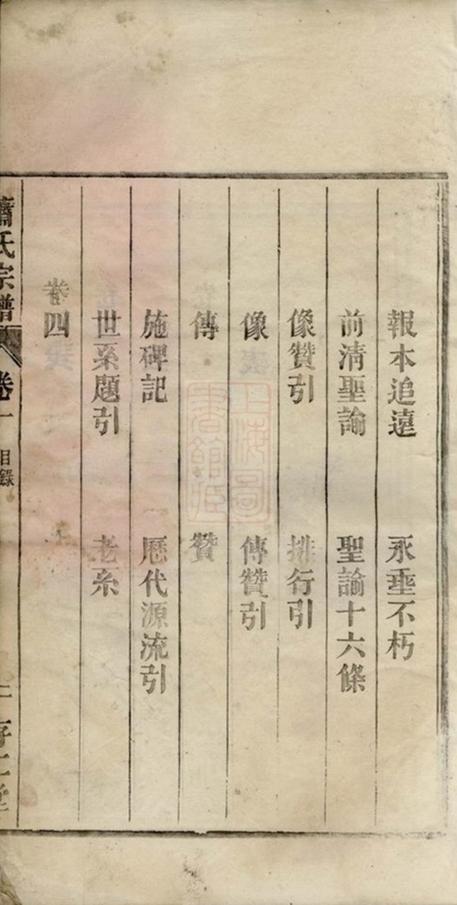 報本追遠 永垂不朽
前清聖諭 聖諭十六條
像贊引 排行引
像 傳贊引
傳 贊
施碑記 歷代源流引
世系題引 老系
卷四
蕭氏宗譜 卷一 目錄
上海圖書館藏